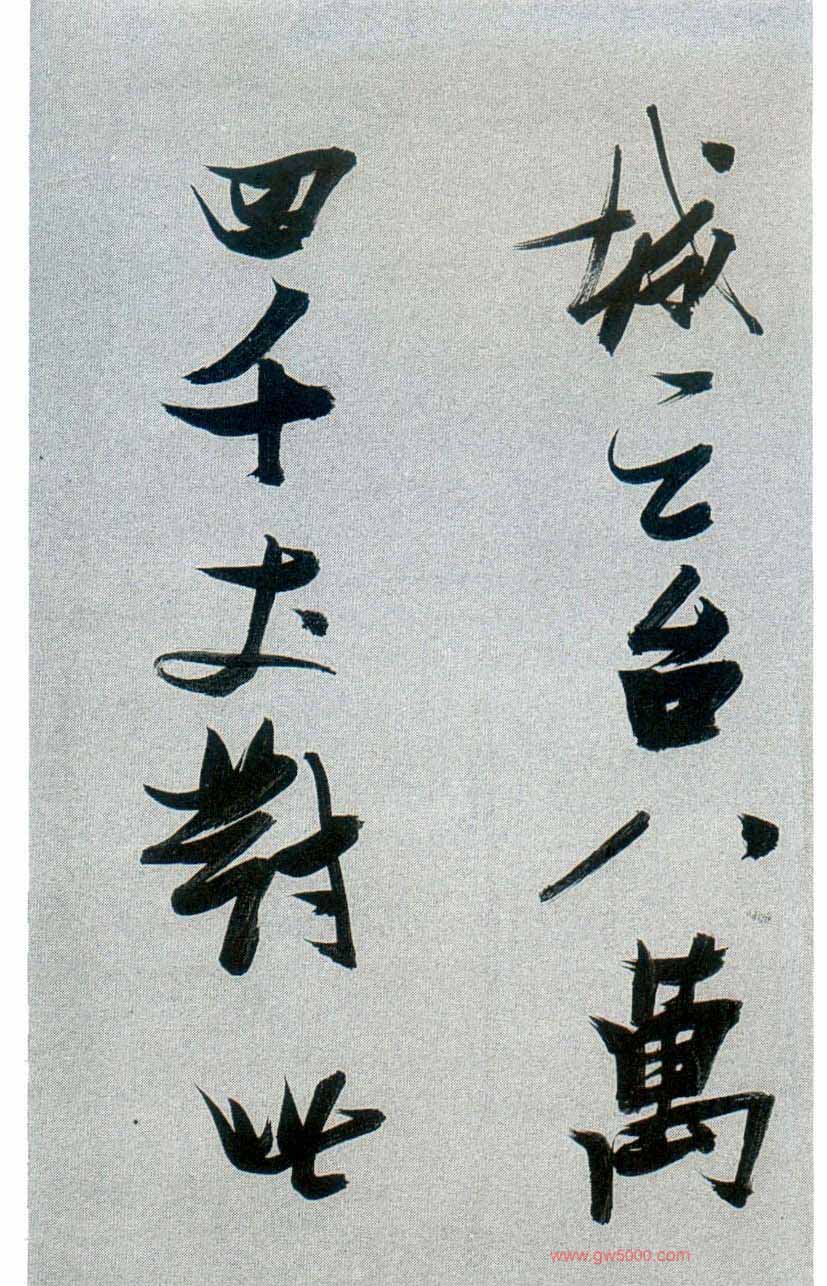 城天台八萬
四千丈對此
www.gw5000.com